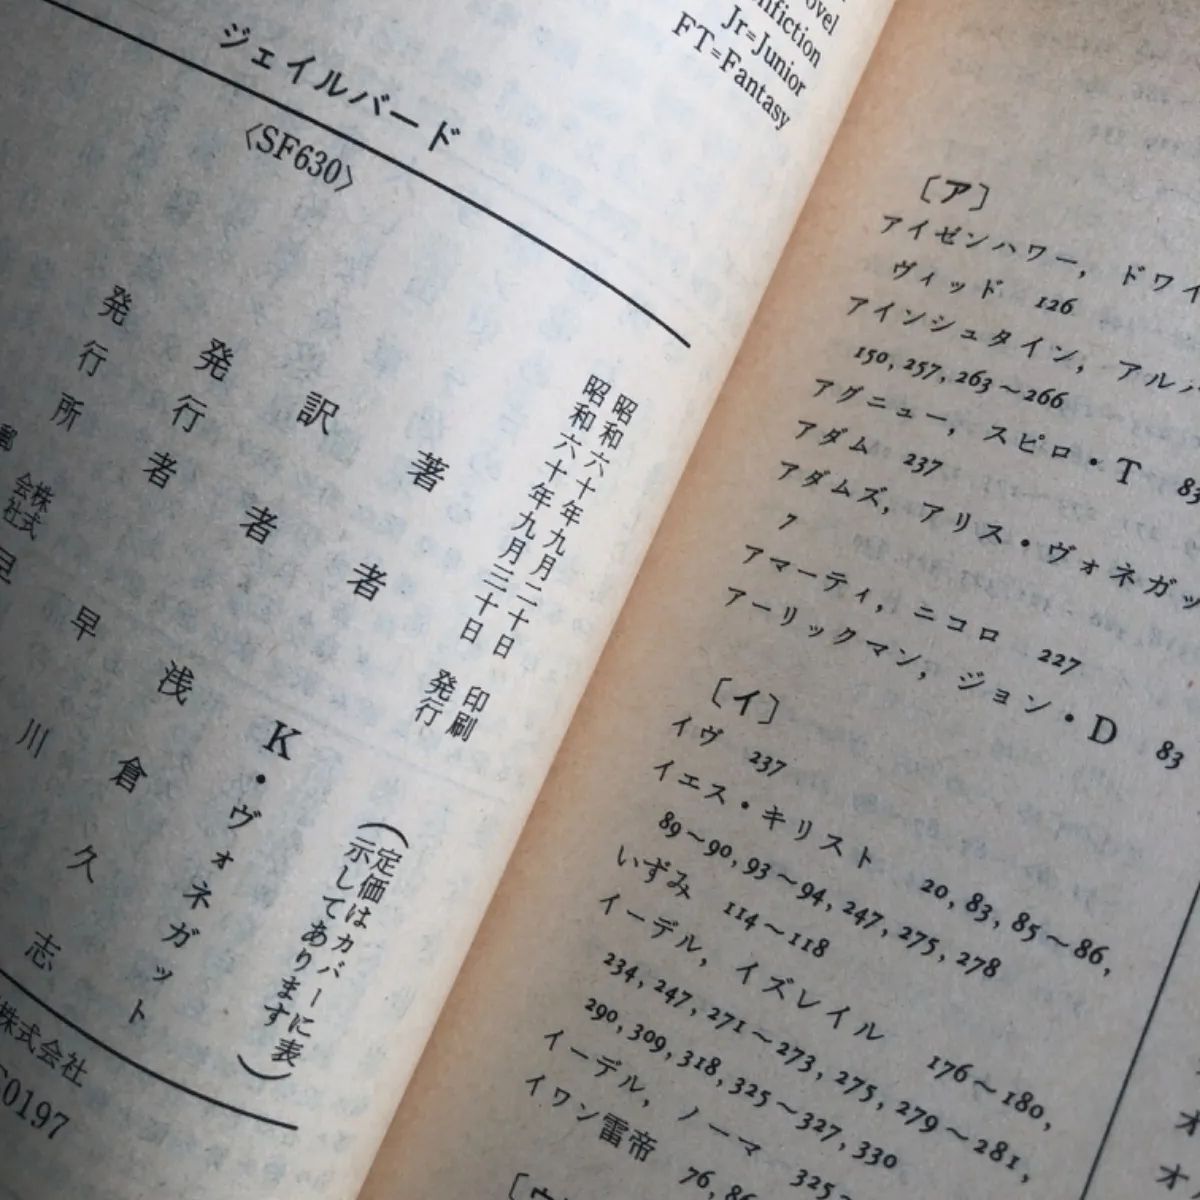 ovel
nfiction
Jr=Junior
FT=Fantasy
ジェイルバード
〈SF630〉
昭和六十年九月二十日 印刷
昭和六十年九月三十日 発行
(定価はカバーに表
示してあります)
著者 K・ヴォネガット
訳者 浅倉久志
発行者 早川
発行所 株式会社 早
株式会社
0197
〔ア〕
アイゼンハワー, ドワイ
ヴィッド 126
アインシュタイン, アル
150, 257, 263～266
アグニュー, スピロ・T 83
アダム 237
アダムズ, アリス・ヴォネガッ
7
アマーティ, ニコロ 227
アーリックマン, ジョン・D 83
〔イ〕
イヴ 237
イエス・キリスト 20, 83, 85～86,
89～90, 93～94, 247, 275, 278
いずみ 114～118
イーデル, イズレイル 176～180,
234, 247, 271～273, 275, 279～281,
290, 309, 318, 325～327, 330
イーデル, ノーマ 325～
イワン雷帝 76, 86
〔ウ
オ
オ